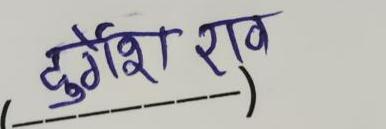 दुर्गेश राव
(___________)